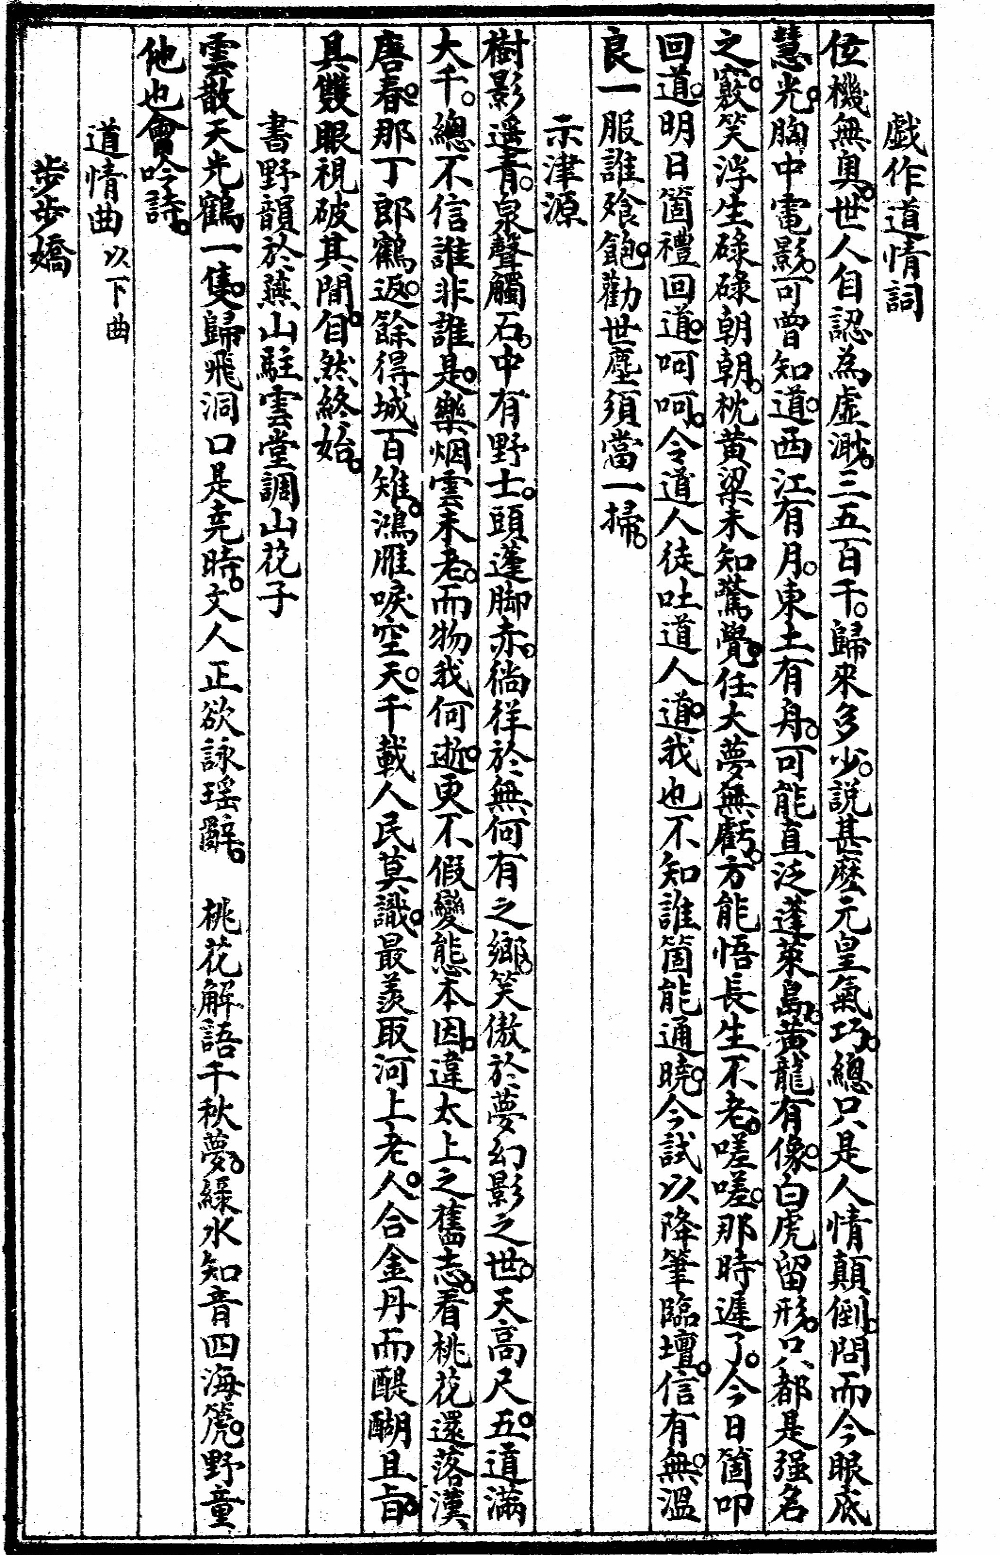 戲作道情詞
位機無奧。世人自認為虛渺。三五百千。歸來多少。説甚麽元皇氣巧。總只是人情顛倒。問而今眼底
慧光。胸中電影。可曾知道。西江有月。東土有舟。可能直泛蓬萊島。黃龍有像。白虎留形。只都是强名
之竅。笑浮生碌碌朝朝。枕黃粱未知驚覺。任大夢無虧。方能悟長生不老。嗟嗟。那時遲了。今日箇叩
回道。明日箇禮回道。呵呵。令道人徒吐道人道。我也不知誰箇能通曉。今試以降筆臨壇。信有無。溫
良一服誰飱飽。勸世塵須當一掃。
示津源
樹影遥青。泉聲觸石。中有野士。頭蓬脚赤。徜徉於無何有之鄉。笑傲於夢幻影之世。天高尺五。道滿
大千。總不信誰非誰是。樂烟雲未老。而物我何逝。更不假變態本因。違太上之舊志。看桃花還落漢
唐春。那丁郎鶴返。餘得城百雉。鴻雁唳空天。千載人民莫識。最羨取河上老人。合金丹而醍醐且旨。
具雙眼視破其間。自然終始。
書野韻於燕山駐雲堂調山花子
雲散天光鶴一隻。歸飛洞口是堯時。文人正欲詠瑶辭。　桃花解語千秋夢。綠水知音四海箎。野童
他也會吟詩。
道情曲以下曲
步步嬌